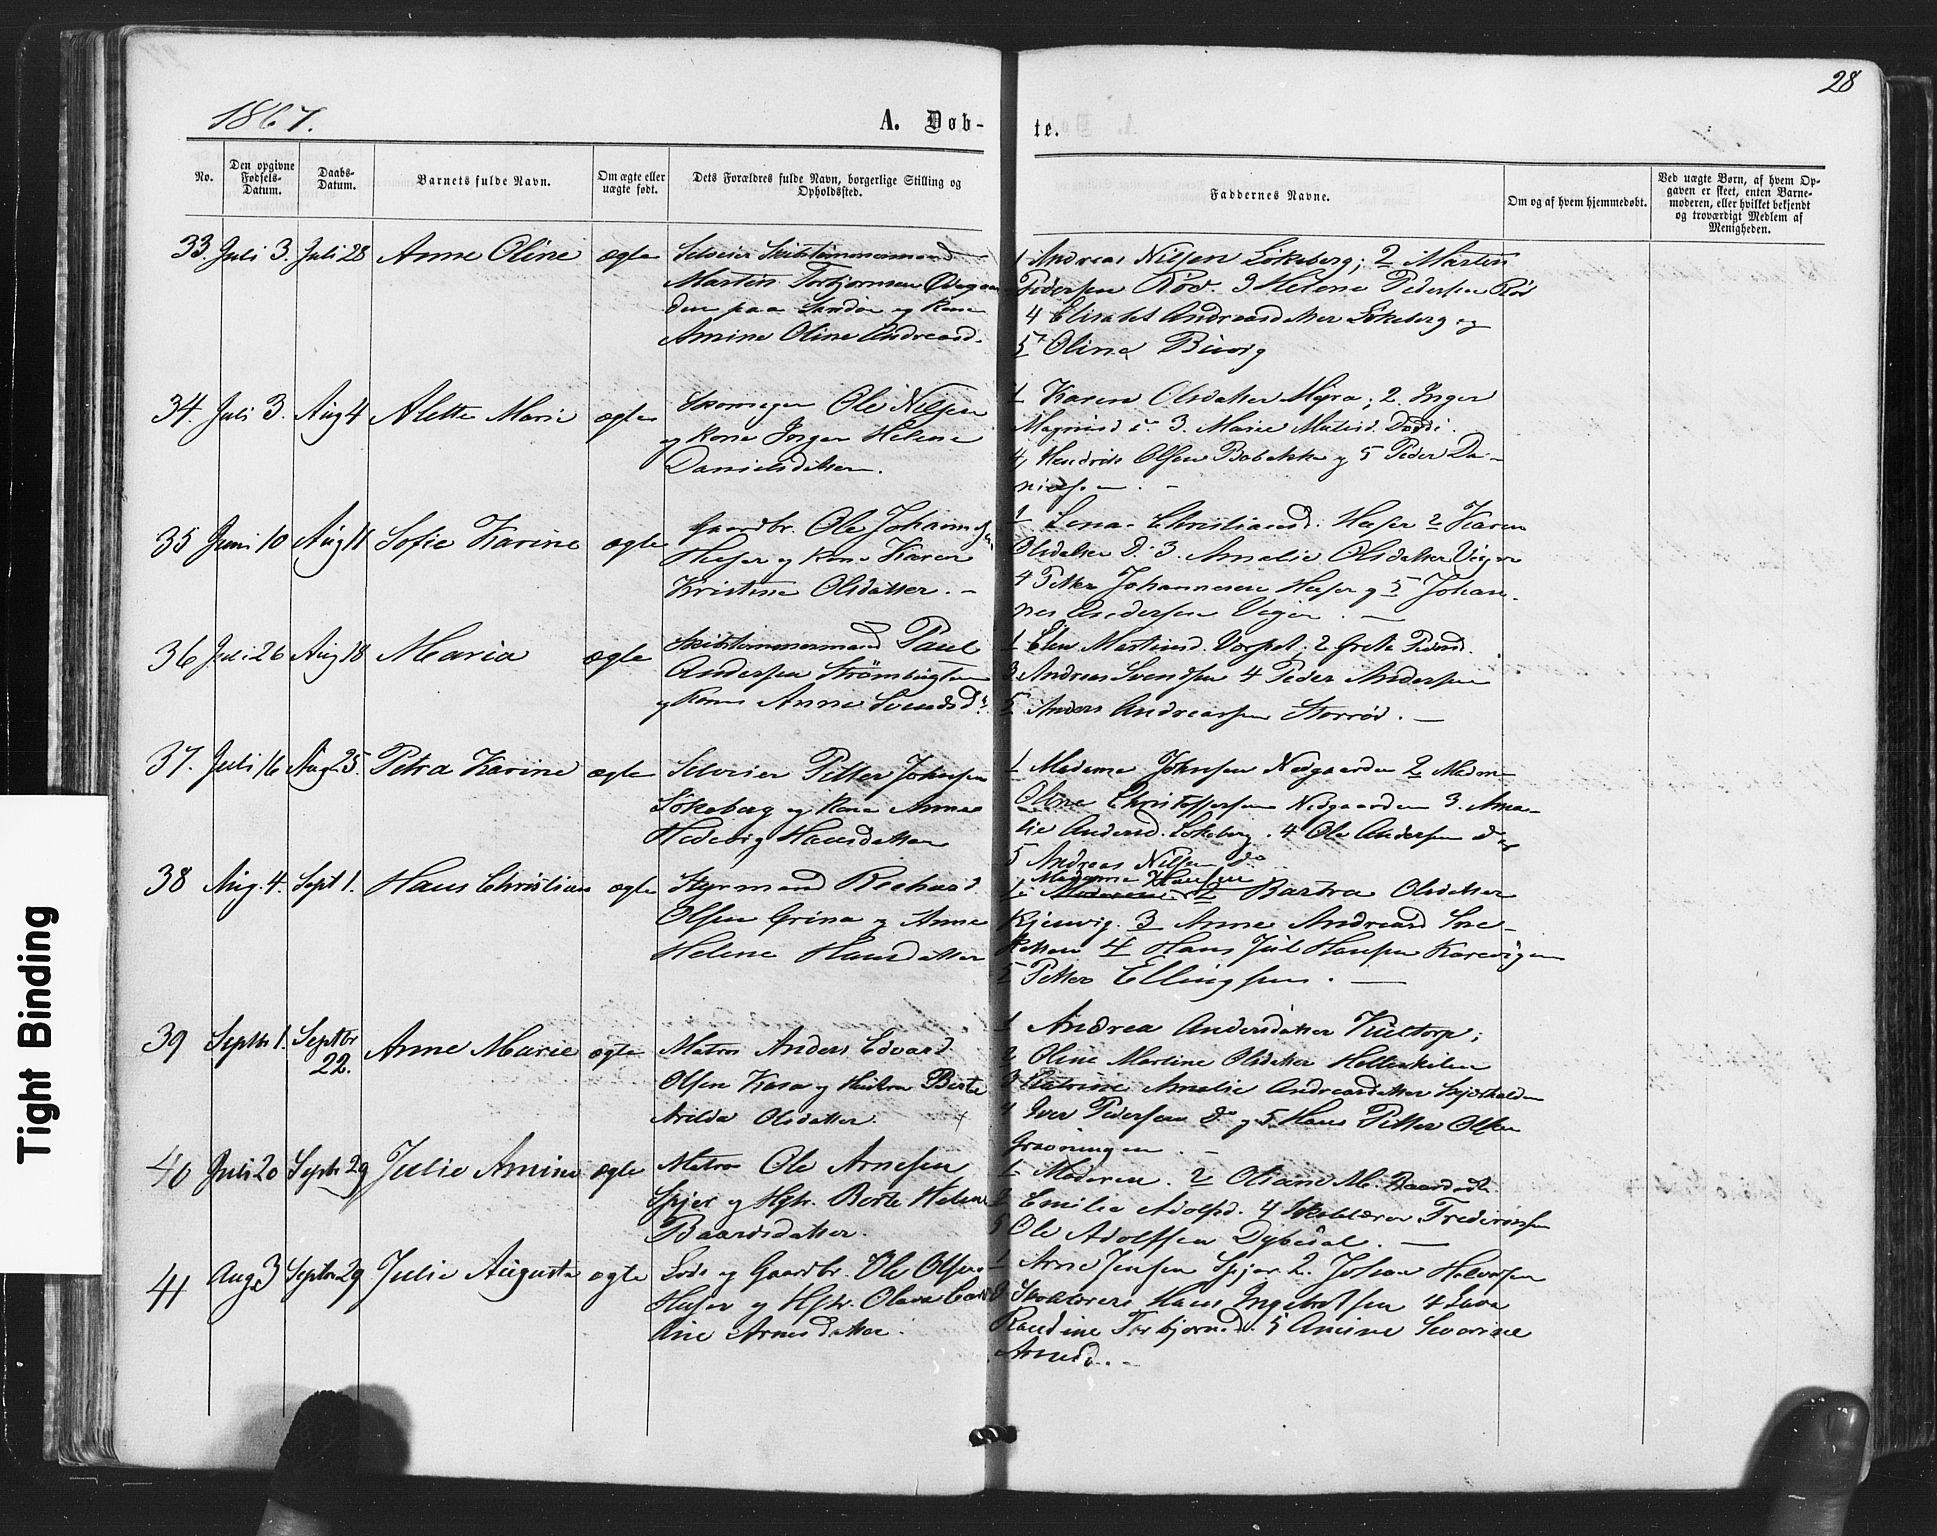 28
1867.
A. Døb-
te.
No.
Den opgivne Fødsels-Datum.
Daabs-Datum.
Barnets fulde Navn.
Om ægte eller uægte født.
Dets Forældres fulde Navn, borgerlige Stilling og Opholdssted.
Faddernes Navne.
Om og af hvem hjemmedøbt.
Ved uægte Børn, af hvem Op-
gaven er skeet, enten Barne-
moderen, eller hvilket bekjendt
og troværdigt Medlem af
Menigheden.
33. Juli 3. Juli 28 Anne Oline ægte Selveier Skibstømmermand
Martin Torbjørnsen
den paa Sandø og Kone
Amine Oline Andreasd.
1 Andreas Nilsen Løkeberg; 2 Martin
Pedersen Rød. 3 Helene Pedersen Rød
4 Elisabet Andreasdatter Løkeberg og
5 Oline
34. Juli 3. Aug 4 Alette Marie ægte Ole Nilsen
og Kone Inger Helene
Danielsdatter.
1 Karen Olsdatter Myra; 2. Inger
3. Marie
4, Hendrik Olsen Bobakke og 5 Peder Da-
nielsen. -
35 Juni 10 Aug 11 Sofie Karine ægte Gaardbr. Ole Johannesen
og Kone Karen
Kristine Olsdatter. -
1 Lena Christiansd. 2 Karen
Olsdatter do. 3. Amalie Olsdatter
4 Petter Johannesen og 5 Johan-
nes Andersen
36 Juli 26 Aug 18 Maria ægte Skibstømmermand Paul
Andersen Strømbugten
og Kone Anne Svendsdr.
1 Elen Martinsd. 2 Grete Pedersd.
3 Andreas Svendsen 4 Peder Andersen
5 Anders Andreassen Storrød. -
37. Juli 16 Aug 25. Petra Karine ægte Selveier Petter Johnsen
Løkeberg og Kone Anne
Hedevig Hansdatter
1 Madame Johnsen Nedgaarden 2 Madm
Oline Christoffersen Nedgaarden 3. Ama-
lie Andersd. Løkeberg. 4 Ole Andersen do
5 Andreas Nilsen do
38 Aug. 4. Sept 1. Hans Christian ægte Styrmand Richard
Olsen Grina og Anne
Helene Hansdatter
Madame Hansen
1 Moderen 2 Olsdatter
3 Anne Andreasd
4 Hans Jul Hansen
5 Petter Ellingsen. -
39 Septbr 1. Septbr 22. Anne Marie ægte Matros Anders Edvard
Olsen Kasa og Hustru Berte
Arilda Olsdatter.
1 Andrea Andersdatter Kiiltorp;
2 Oline Martine Olsdatter Hellekilen
3 Katrine Amalie Andreasdatter
4 Iver Pedersen do og 5 Hans Petter Olsen
Grønningen
40 Juli 20 Septr 29 Julie Amine ægte Matros Ole Arnesen
Spjer og Hstr. Berte Helene
Baardsdatter.
1 Moderen. 2 Oliane M. Baardsdt.
3 Emilie Adolfsd. 4 Skolelærer Fredriksen
5 Ole Adolfsen Dybedal. -
41 Aug 3 Septbr 29 Julie Augusta ægte Lods og Gaardbr. Ole Olsen
og Hstr. Olava Caro-
line Arnesdatter.
1 Arne Jensen Spjer 2. Johan Halvorsen
3 Skolelærer Hans Ingebretsen 4 Lava
Randine Torbjørnsd. 5 Amine Severine
Arnesd. -
Tight Binding